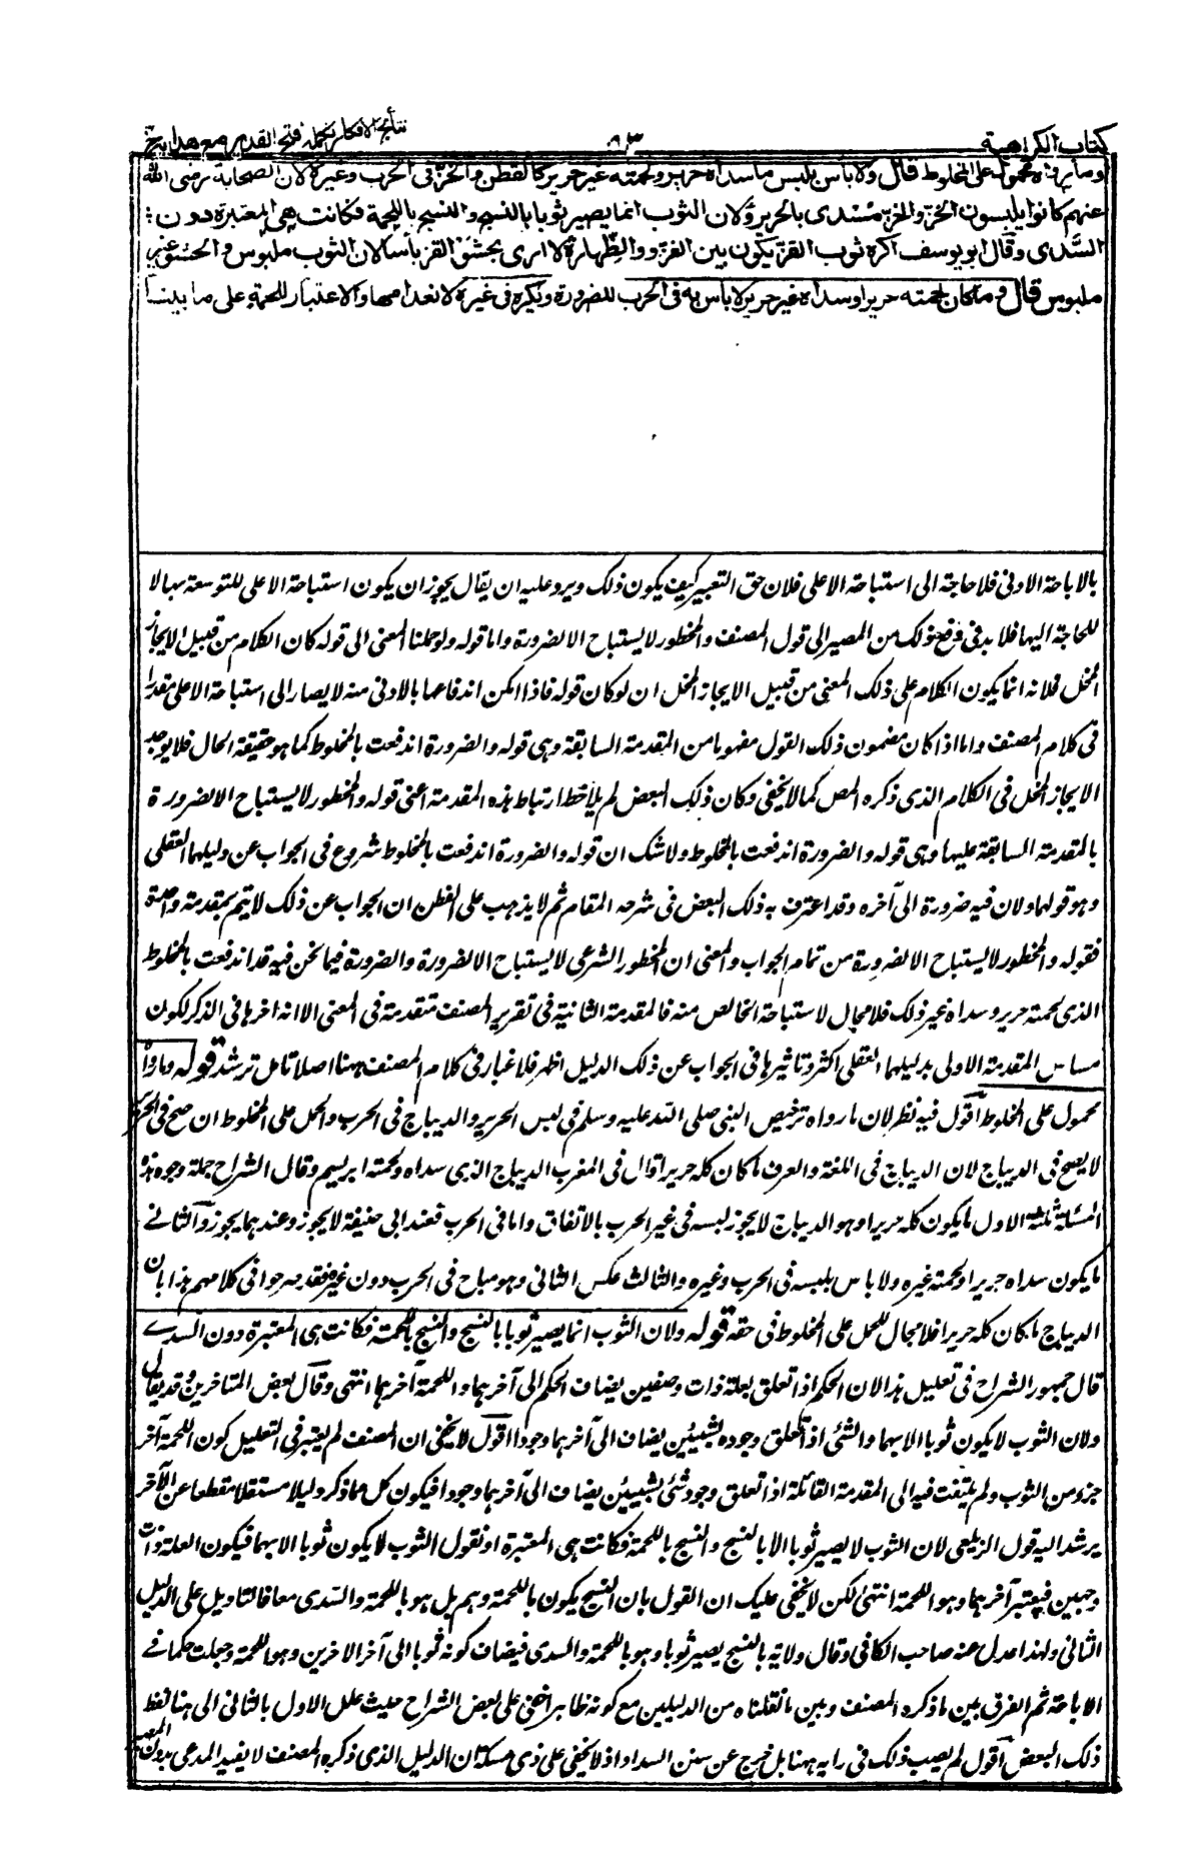 كتاب الكراهية
٨٣
نتائج الافكار تكملة فتح القدير مع هداية
وما رواه محمول على المخلوط قال ولا باس بلبس ما سداه حرير ولحمته غير حرير كالقطن والخز فى الحرب وغيره لان الصحابة رضى الله
عنهم كانوا يلبسون الخز والخز مسدى بالحرير ولان الثوب انما يصير ثوبا بالنسج والنسج باللحمة فكانت هى المعتبرة دون
السدى وقال ابو يوسف اكره ثوب القز يكون بين الفرو والظهارة ولا ارى بحشو القز بأسا لان الثوب ملبوس والحشو غير
ملبوس قال وما كان لحمته حريرا وسداه غير حرير لا باس به فى الحرب للضرورة ويكره فى غيره لانعدامها والاعتبار للحمة على ما بينا
بالاباحة الادنى فلا حاجة الى استباحة الاعلى فلان حق التعبير كيف يكون ذلك ويرد عليه ان يقال يجوز ان يكون استباحة الاعلى للتوسعة بها لا
للحاجة اليها فلا بد فى دفع ذلك من المصير الى قول المصنف والمحظور لا يستباح الا لضرورة واما قوله ولو حملنا المعنى الى قوله كان الكلام من قبيل الايجاز
المخل فلانه انما يكون الكلام على ذلك المعنى من قبيل الايجاز المخل ان لو كان قوله فاذا امكن اندفاعها بالادنى منه لا يصار الى استباحة الاعلى مقدرا
فى كلام المصنف واما اذا كان مضمون ذلك القول مفهوما من المقدمة السابقة وهى قوله والضرورة اندفعت بالمخلوط كما هو حقيقة الحال فلا يوجد
الايجاز المخل فى الكلام الذى ذكره المص كما لا يخفى وكان ذلك البعض لم يلاحظ ارتباط هذه المقدمة اعنى قوله والمحظور لا يستباح الا لضرورة
بالمقدمة السابقة عليها وهى قوله والضرورة اندفعت بالمخلوط ولا شك ان قوله والضرورة اندفعت بالمخلوط شروع فى الجواب عن دليلهما العقلى
وهو قولهما ولان فيه ضرورة الى آخره وقد اعترف به ذلك البعض فى شرحه المقام ثم لا يذهب على الفطن ان الجواب عن ذلك لا يتم بمقدمة واحدة
فقوله والمحظور لا يستباح الا لضرورة من تمام الجواب والمعنى ان المحظور الشرعى لا يستباح الا لضرورة والضرورة فيما نحن فيه قد اندفعت بالمخلوط
الذى لحمته حرير وسداه غير ذلك فلا مجال لاستباحة الخالص منه فالمقدمة الثانية فى تقرير المصنف متقدمة فى المعنى الا انه اخرها فى الذكر لكون
مساس المقدمة الاولى بدليلهما العقلى اكثر وتاثيرها فى الجواب عن ذلك الدليل اظهر فلا غبار فى كلام المصنف ههنا اصلا تامل ترشد قوله وما رواه
محمول على المخلوط اقول فيه نظر لان ما رواه ترخيص النبى صلى الله عليه وسلم فى لبس الحرير والديباج فى الحرب والحمل على المخلوط ان صح فى الحرير
لا يصح فى الديباج لان الديباج فى اللغة والعرف ما كان كله حريرا قال فى المغرب الديباج الذى سداه ولحمته ابريسم وقال الشراح جملة وجوه هذه
المسئلة ثلثة الاول ما يكون كله حريرا وهو الديباج لا يجوز لبسه فى غير الحرب بالاتفاق واما فى الحرب فعند ابى حنيفة لا يجوز وعندهما يجوز والثانى
ما يكون سداه حريرا ولحمته غيره ولا باس بلبسه فى الحرب وغيره والثالث عكس الثانى وهو مباح فى الحرب دون غيره فقد صرحوا فى كلامهم هذا بان
الديباج ما كان كله حريرا فلا مجال للحمل على المخلوط فى حقه قوله ولان الثوب انما يصير ثوبا بالنسج والنسج باللحمة فكانت هى المعتبرة دون السدى
قال جمهور الشراح فى تعليل هذا لان الحكم اذا تعلق بعلة ذات وصفين يضاف الحكم الى آخرهما واللحمة آخرهما انتهى وقال بعض المتاخرين وقد يقال
ولان الثوب لا يكون ثوبا الا بهما والشئ اذا تعلق وجوده بشيئين يضاف الى آخرهما وجودا اقول لا يخفى ان المصنف لم يعتبر فى التعليل كون اللحمة آخر
جزء من الثوب ولم يلتفت فيه الى المقدمة القائلة اذا تعلق وجود شئ بشيئين يضاف الى آخرهما وجودا فيكون كل مما ذكر دليلا مستقلا منقطعا عن الآخر
يرشد اليه قول الزيلعى لان الثوب لا يصير ثوبا الا بالنسج والنسج باللحمة فكانت هى المعتبرة او نقول الثوب لا يكون ثوبا الا بهما فيكون العلة ذات
وجهين فيعتبر آخرهما وهو اللحمة انتهى لكن لا يخفى عليك ان القول بان النسج يكون باللحمة وهم بل هو باللحمة والسدى معا فالتاويل على الدليل
الثانى ولهذا عدل عنه صاحب الكافى وقال ولانه بالنسج يصير ثوبا وهو باللحمة والسدى فيضاف كونه ثوبا الى آخر الاخرين وهو اللحمة وجعلت حكما فى
الاباحة ثم الفرق بين ما ذكره المصنف وبين ما نقلناه من الدليلين مع كونه ظاهرا خفى على بعض الشراح حيث علل الاول بالثانى الى هنا لفظ
ذلك البعض اقول لم يصب ذلك فى رايه ههنا بل خرج عن سنن السداد اذ لا يخفى على ذى مسكة ان الدليل الذى ذكره المصنف لا يفيد المدعى بدون